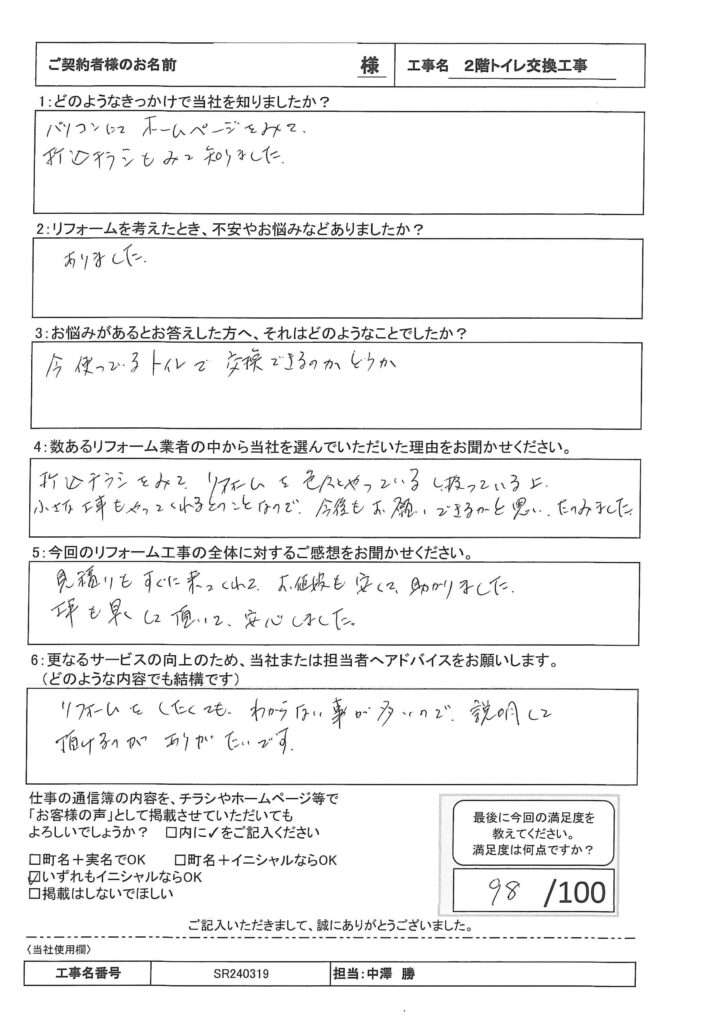 ご契約者様のお名前 様 工事名 2階トイレ交換工事
1:どのようなきっかけで当社を知りましたか?
パソコンにて ホームページをみて、
折込チラシもみて知りました。
2:リフォームを考えたとき、不安やお悩みなどありましたか?
ありました。
3:お悩みがあるとお答えした方へ、それはどのようなことでしたか?
今使っているトイレで交換できるのかどうか
4:数あるリフォーム業者の中から当社を選んでいただいた理由をお聞かせください。
折込チラシをみて、リフォームを色々とやっている し、扱っている上、
小さな工事もやってくれるとのことなので、今後もお願いできるかと思い、たのみました
5:今回のリフォーム工事の全体に対するご感想をお聞かせください。
見積りもすぐに来てくれて、お値段も安くて、助かりました。
工事も早くして頂いて、安心しました。
6:更なるサービスの向上のため、当社または担当者へアドバイスをお願いします。
(どのような内容でも結構です)
リフォームをしたくても、わからない事が多いので、説明して
頂けるのがありがたいです。
仕事の通信簿の内容を、チラシやホームページ等で
「お客様の声」として掲載させていただいても
よろしいでしょうか? □内に✓をご記入ください
□町名+実名でOK □町名+イニシャルならOK
☑いずれもイニシャルならOK
□掲載はしないでほしい
最後に今回の満足度を
教えてください。
満足度は何点ですか?
98 /100
ご記入いただきまして、誠にありがとうございました。
〈当社使用欄〉
工事名番号 SR240319 担当:中澤 勝